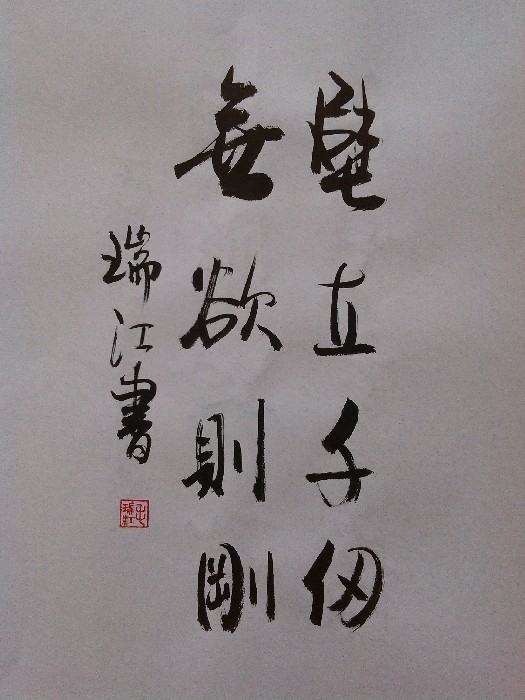 壁立千仞
無欲則剛
瑞江書